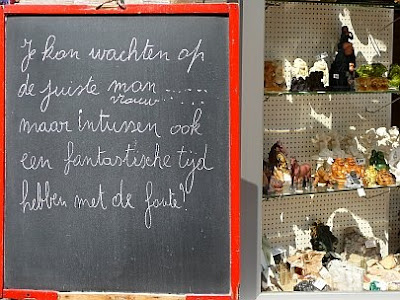 Je kan wachten op
de juiste man ......
vrouw .....
maar intussen ook
een fantastische tijd
hebben met de foute!